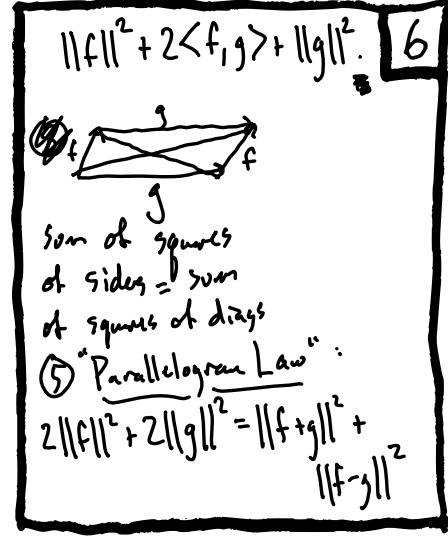 ||f||² + 2<f,g> + ||g||².
6
g
f
f
g
sum of squares
of sides = sum
of squares of diags
⑤ "Parallelogram Law" :
2||f||² + 2||g||² = ||f+g||² +
||f-g||²